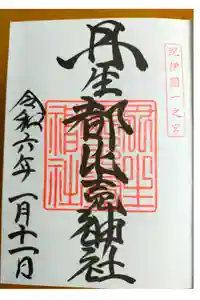 紀伊國一之宮
丹生都比売神社
令和六年一月十一日